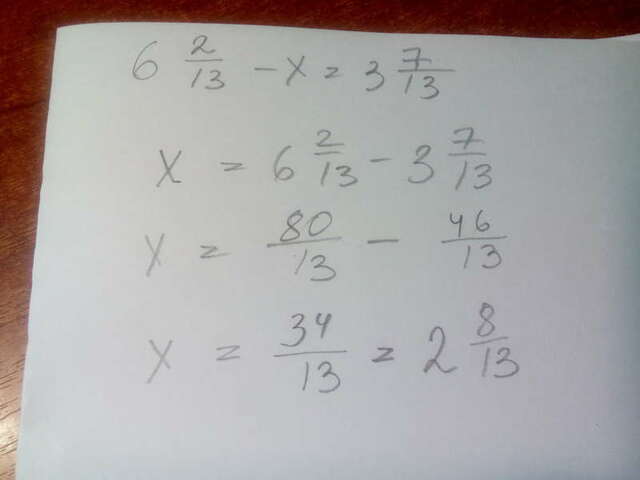 6 2/13 - x = 3 7/13
x = 6 2/13 - 3 7/13
x = 80/13 - 46/13
x = 34/13 = 2 8/13